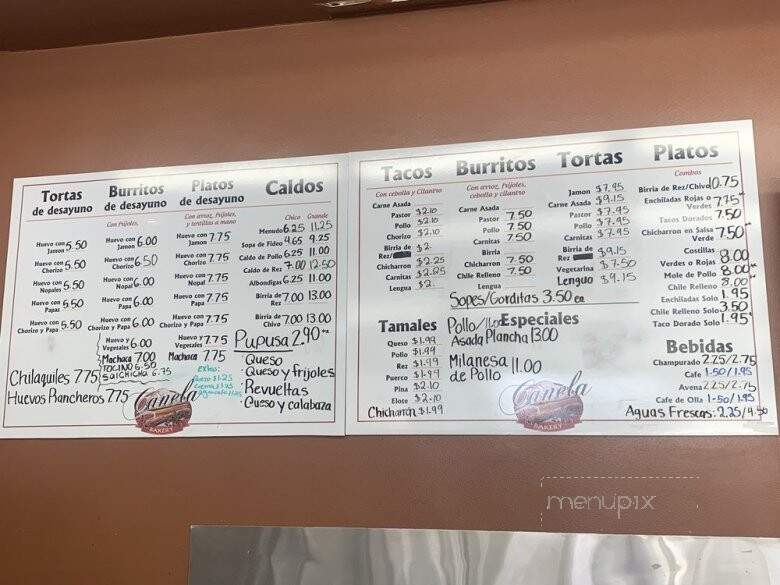 Tortas
de desayuno
Huevo con Jamon 5.50
Huevo con Chorizo 5.50
Huevo con Nopales 5.50
Huevo con Papas 5.50
Huevo con Chorizo y Papa 5.50
Chilaquiles 7.75
Huevos Rancheros 7.75
Burritos
de desayuno
Con frijoles,
Huevo con Jamon 6.00
Huevo con Chorizo 6.50
Huevo con Nopal 6.00
Huevo con Papa 6.00
Huevo con Chorizo y Papa 6.00
Huevo y Vegetales 6.00
Machaca 7.00
TOCINO 6.50
SalCHiCHA 6.75
Platos
de desayuno
Con arroz, Frijoles,
y tortillas a mano
Huevo con Jamon 7.75
Huevo con Chorizo 7.75
Huevo con Nopal 7.75
Huevo con Papa 7.75
Huevo con Chorizo y Papa 7.75
Huevo y Vegetales 7.75
Machaca 7.75
Extra:
Queso $1.25
Caldos
Chico Grande
Menudo 6.25 11.25
Sopa de Fideo 4.65 9.25
Caldo de Pollo 6.25 11.00
Caldo de Rez 7.00 12.50
Albondigas 6.25 11.00
Birria de Rez 7.00 13.00
Birria de Chivo 7.00 13.00
Pupusa 2.90
· Queso
· Queso y frijoles
· Revueltas
· Queso y calabaza
Canela
BAKERY
Tacos
Con cebolla y Cilantro
Carne Asada
Pastor $2.10
Pollo $2.10
Chorizo $2.10
Birria de Rez/ $2.
Chicharron $2.25
Carnitas $2.25
Lengua $2.
Tamales
Queso $1.99
Pollo $1.99
Rez $1.99
Puerco $1.99
Pina $2.10
Elote $2.10
Chicharrón $1.99
Burritos
Con arroz, Frijoles,
cebolla y cilantro
Carne Asada
Pastor 7.50
Pollo 7.50
Carnitas 7.50
Birria
Chicharron 7.50
Chile Relleno 7.50
Lengua
Sopes/Gorditas 3.50 ea
Tortas
Jamon $7.95
Carne Asada $9.15
Pastor $7.95
Pollo $7.95
Carnitas $7.95
Birria de Rez $9.15
Vegetarina $7.50
Lenguo $9.15
Especiales
Pollo/
Asada Plancha 13.00
Milanesa 11.00
de Pollo
Canela
BAKERY
Platos
Combos
Birria de Rez/Chivo 10.75
Enchiladas Rojas o Verdes 7.75
Tacos Dorados 7.50
Chicharron en Salsa Verde 7.50
Costillas Verdes o Rojas 8.00
Mole de Pollo 8.00
Chile Relleno 8.00
Enchiladas Solo 1.95
Chile Relleno Solo 3.50
Taco Dorado Solo 1.95
Bebidas
Champurado 2.25/2.75
Cafe 1.50/1.95
Avena 2.25/2.75
Cafe de Olla 1.50/1.95
Aguas Frescas: 2.25/4.50
menupix